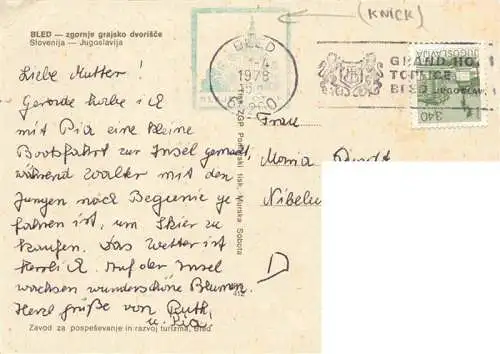 BLED — zgornje grajsko dvorišče
Slovenija — Jugoslavija
(KNICK)
BLED
1978
GRAND HOTEL
TOPLICE
BLED JUGOSLAV.
JUGOSLAVIJA
3.40
Liebe Mutter!
Gerade habe ich
mit Pia eine kleine
Bootsfahrt zur Insel gemacht,
während Walter mit den
Jungen nach Begunje ge
fahren ist, um Skier zu
kaufen. Das Wetter ist
herrlich. Auf der Insel
wachsen wunderschöne Blumen.
Herzl. Grüße von Ruth,
u. Pia
Frau
Nibelu
D
Tisk ZGP Pomurski tisk, Murska Sobota
Zavod za pospeševanje in razvoj turizma, Bled